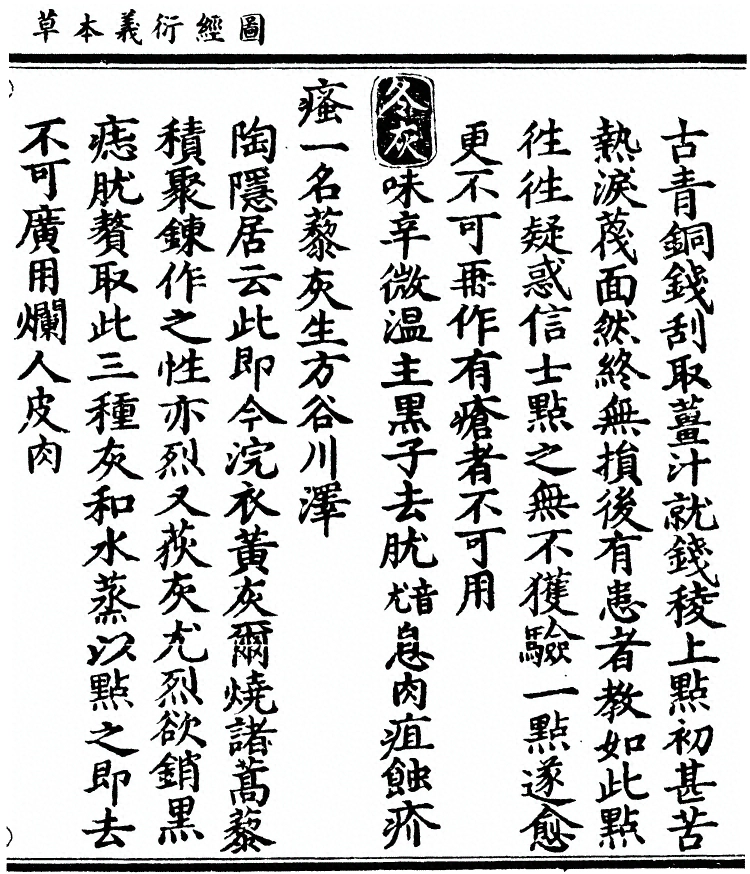 圖經衍義本草
古青銅錢刮取薑汁就錢稜上點初甚苦
熱淚蔑面然終無損後有患者教如此點
徃徃疑惑信士點之無不獲驗一點遂愈
更不可再作有瘡者不可用
冬灰味辛微温主黑子去肬音尤息肉疽蝕疥
瘙一名藜灰生方谷川澤
陶隱居云此即今浣衣黃灰爾燒諸蒿藜
積聚鍊作之性亦烈又荻灰尤烈欲銷黑
痣肬贅取此三種灰和水蒸以點之即去
不可廣用爛人皮肉